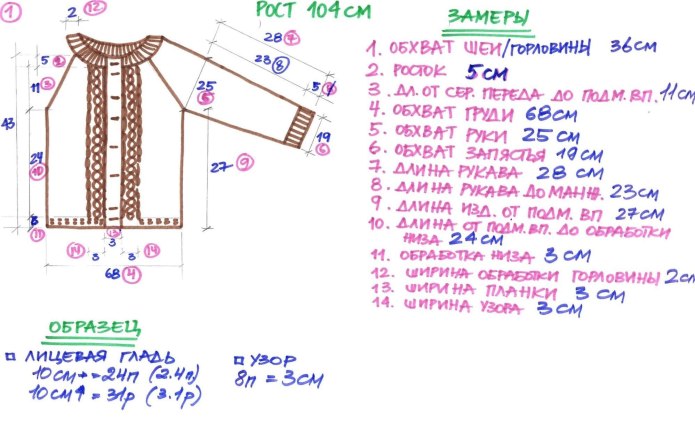 1
РОСТ 104 СМ
2
12
28
7
23
8
5
8
5
2
11
3
43
25
5
19
6
24
10
27
9
8
11
13
3
14
3
3
14
68
4
ЗАМЕРЫ
1. ОБХВАТ ШЕИ/ГОРЛОВИНЫ 36 СМ
2. РОСТОК 5 СМ
3. ДЛ. ОТ СЕР. ПЕРЕДА ДО ПОДМ. ВП. 11 СМ
4. ОБХВАТ ГРУДИ 68 СМ
5. ОБХВАТ РУКИ 25 СМ
6. ОБХВАТ ЗАПЯСТЬЯ 19 СМ
7. ДЛИНА РУКАВА 28 СМ
8. ДЛИНА РУКАВА ДО МАНЖ. 23 СМ
9. ДЛИНА ИЗД. ОТ ПОДМ. ВП 27 СМ
10. ДЛИНА ОТ ПОДМ. ВП. ДО ОБРАБОТКИ
НИЗА 24 СМ
11. ОБРАБОТКА НИЗА 3 СМ
12. ШИРИНА ОБРАБОТКИ ГОРЛОВИНЫ 2 СМ
13. ШИРИНА ПЛАНКИ 3 СМ
14. ШИРИНА УЗОРА 3 СМ
ОБРАЗЕЦ
ЛИЦЕВАЯ ГЛАДЬ
10 СМ → = 24 П (2.4 П)
10 СМ ↑ = 31 Р (3.1 Р)
УЗОР
8 П = 3 СМ